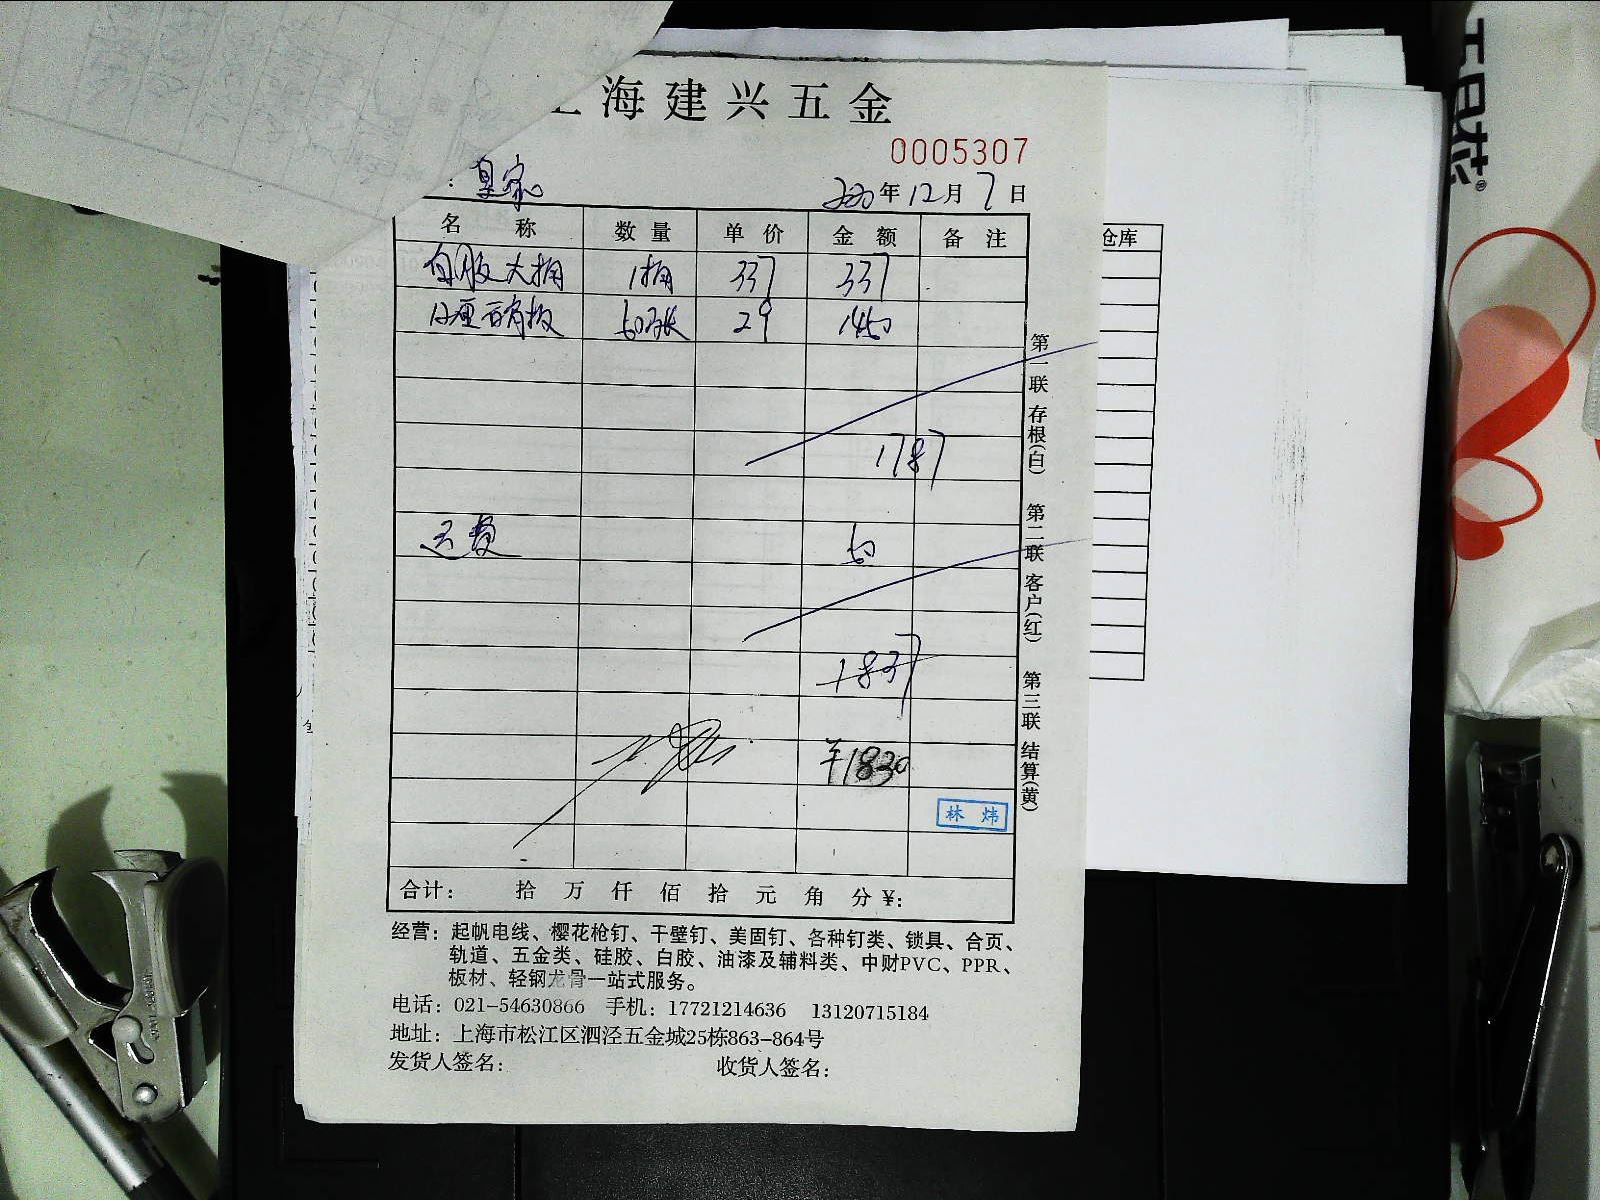 上海建兴五金
0005307
: 皇家 2020年12月7日
名称 数量 单价 金额 备注
白胶大桶 1桶 337 337
12厘石膏板 50张 29 1450
1787
运费 50
1837
¥1830
林炜
合计: 拾 万 仟 佰 拾 元 角 分 ¥:
经营: 起帆电线、樱花枪钉、干壁钉、美固钉、各种钉类、锁具、合页、
轨道、五金类、硅胶、白胶、油漆及辅料类、中财PVC、PPR、
板材、轻钢龙骨一站式服务。
电话: 021-54630866 手机: 17721214636 13120715184
地址: 上海市松江区泗泾五金城25栋863-864号
发货人签名: 收货人签名:
第一联 存根(白) 第二联 客户(红) 第三联 结算(黄)
仓库